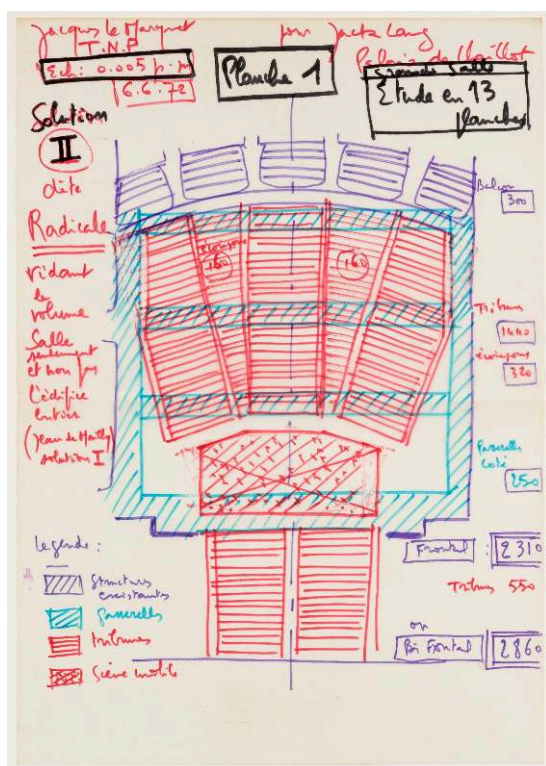 Jacques le Marquet
T.N.P
pour Jack Lang
Ech: 0.005 p.m
6.6.72
Planche 1
Palais de Chaillot
Grande Salle
Etude en 13
planches
Solution
II
dite
Radicale
vidant
le
volume
Salle
seulement
et non pas
l'édifice
entier
(Jean de Mailly)
solution I
écoinçons
160
160
Balcon
300
Tribunes
1440
écoinçons
320
Passerelles
coté
250
Frontal : 2310
Tribunes 550
ou
Bi Frontal 2860
Legende :
Structures
existantes
passerelles
tribunes
Scène mobile